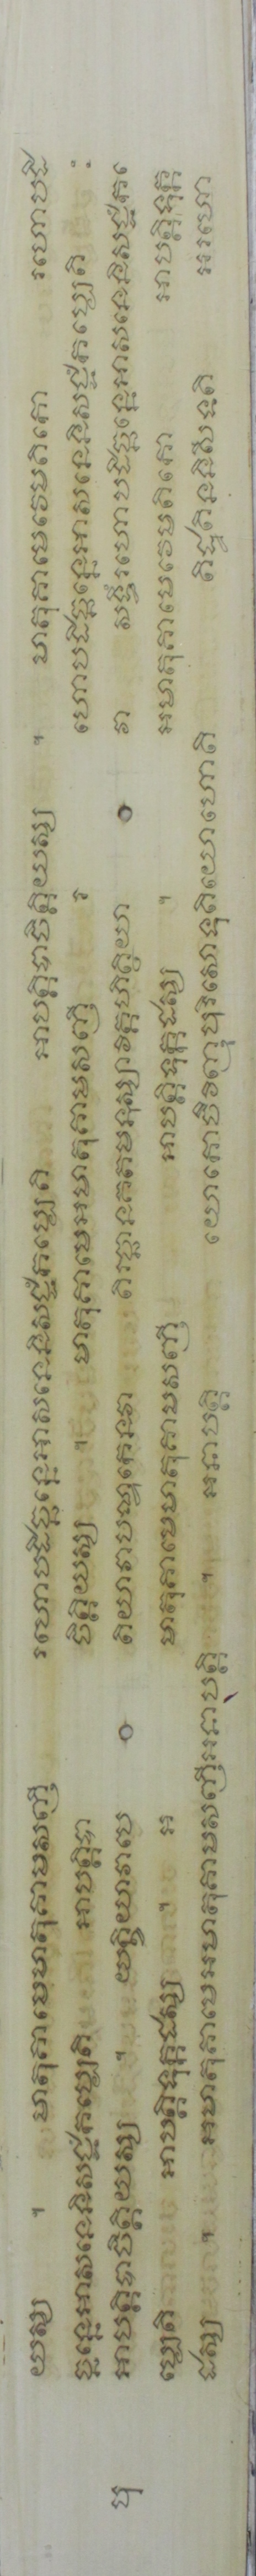 យស្ស ។ មាតុគាមេមាតុគាមសញ្ញី រហោបដិច្ឆន្នេអាសនេនិសជ្ជំកប្បេតិ អាបត្តិបាចិត្តិយស្ស ។ មាតុគាមេវេមតិកោ រហោបដិ
ច្ឆន្នេអាសនេនិសជ្ជំកប្បេតិ អាបត្តិបា ចិត្តិយស្ស ។ មាតុគាមេអមាតុគាមសញ្ញី រ ហោបដិច្ឆន្នេអាសនេនិសជ្ជំកប្បេតិ
ឋុ អាបត្តិបាចិត្តិយស្ស ។ យក្ខិយាវាបេ តិយាវាបណ្ឌកេនវា តិរច្ឆានគតមនុស្សវិគ្គហិត្ថិយា វា សទ្ធឹរហោបដិច្ឆន្នេអាសនេនិសជ្ជំកប
ប្បេតិ អាបត្តិទុក្កដស្ស ។ អ មាតុគាមេមាតុគាមសញ្ញី អាបត្តិទុក្កដស្ស ។ អមាតុគាមេវេមតិកោ អាបត្តិទុក្ក
ដស្ស ។ អមាតុគាមេអមាតុគាមសញ្ញីអនាបត្តិ ។ អនាបត្តិ យោកោចិវិញ្ញុបុរិសោទុតិយោហោតិ តិដ្ឋតិននិសីទតិ អរហោ